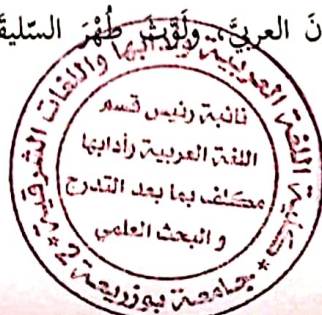 نَ العربيَّ، ولَوَّثَ طُهْرَ السّليقة
كلية اللغة العربية وآدابها واللغات الشرقية
نائبة رئيس قسم
اللغة العربية وآدابها
مكلف بما بعد التدرج
و البحث العلمي
* جامعة بوزريعة 2 *